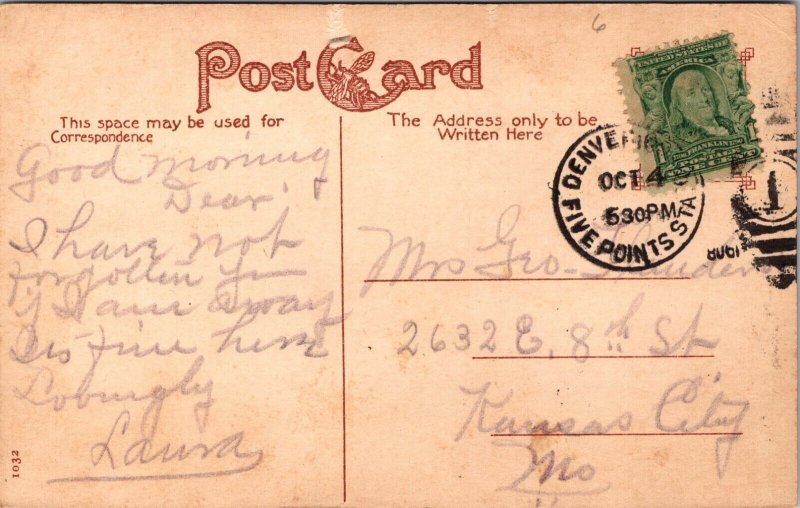 Post Card
This space may be used for
Correspondence
The Address only to be
Written Here
6
UNITED STATES OF
AMERICA
FRANKLIN
POSTAGE
ONE CENT
DENVER
OCT 4
530PM
FIVE POINTS STA
1
1908
Good morning
Dear!
I have not
forgotten you
if I am away
Is fine here
Lovingly
Laura
Mrs Geo
2632 E. 8th St
Kansas City
Mo
1032